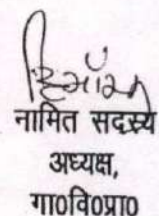 नामित सदस्य
अध्यक्ष,
गा०वि०प्रा०